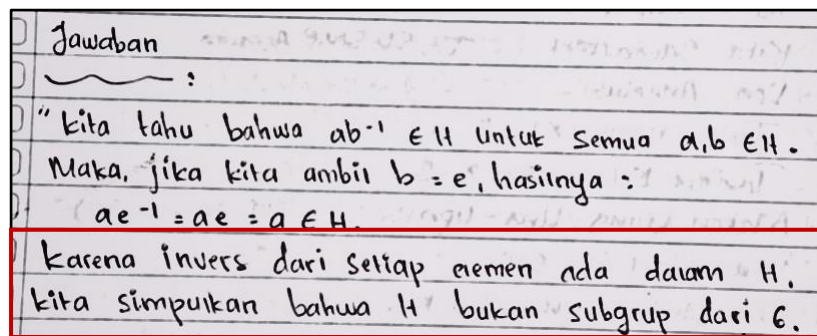 Jawaban
:
"Kita tahu bahwa ab⁻¹ ∈ H untuk semua a,b ∈ H.
Maka, jika kita ambil b = e, hasilnya :
ae⁻¹ = ae = a ∈ H.
Karena invers dari setiap elemen ada dalam H.
Kita simpulkan bahwa H bukan subgrup dari G.